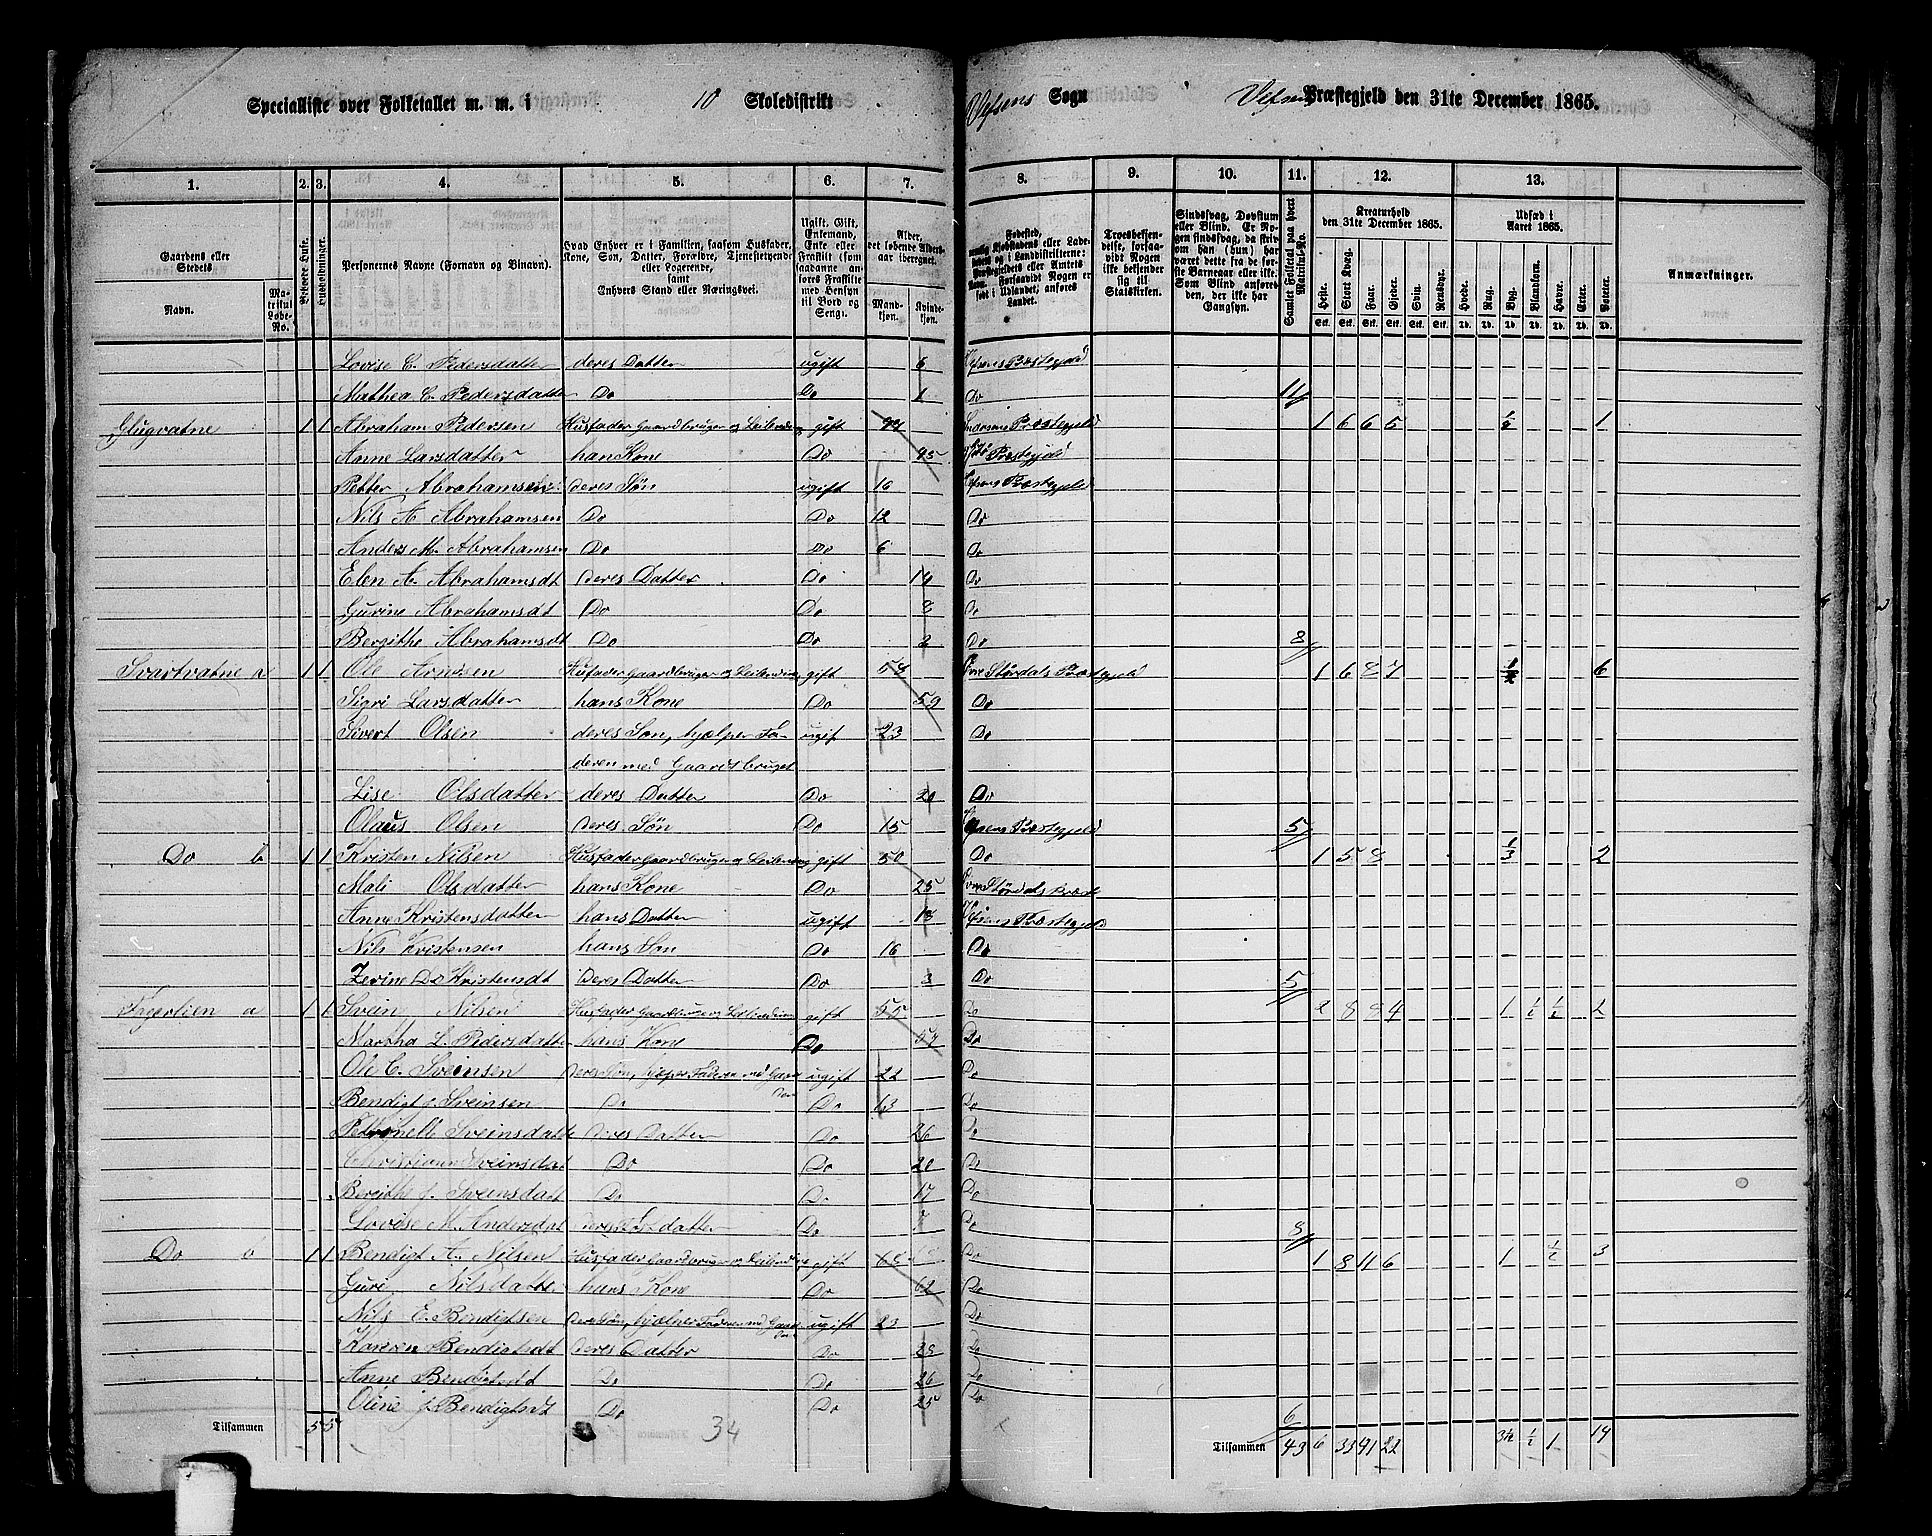 Specialliste over Folketallet m. m. i 10 Skoledistrikt Vefsens Sogn Vefsens Præstegjeld den 31te December 1865.
1. 2. 3. 4. 5. 6. 7. 8. 9. 10. 11. 12. 13.
Gaardens eller Stedets Navn. Matrikul Løbe-No. Beboede Huse. Husholdninger. Personernes Navne (Fornavn og Tilnavn). Hvad Enhver er i Familien, saasom Husfader, Kone, Søn, Datter, Forældre, Tjenestetyende eller Logerende, samt Enhvers Stand eller Næringsvei. Ugift, Gift, Enkemand, Enke eller Fraskilt (som saadanne anføres Fraskilte med Hensyn til Bord og Seng). Alder, det løbende Alders-aar iberegnet. Mandkjøn. Kvindekjøn.
Fødested, Trosbekjendelse, forsaavidt Nogen ikke bekjender sig til Statskirken. Sindssvag, Døvstum eller Blind. Er Nogen sindssvag, da skrives om han (hun) har været dette fra de første Barneaar eller ikke. Som Blind anføres den, der ikke har Gangsyn. Samlet Folketal paa hvert Matrikul-No. Kreaturhold den 31te December 1865. Udsæd i Aaret 1865. Anmærkninger.
Heste. Stort Kvæg. Faar. Gjeder. Svin. Rensdyr. Hvede. Rug. Byg. Blandkorn. Havre. Erter. Poteter.
Lovise C. Pedersdatter deres Datter ugift 6 Vefsens Præstegjeld
Mathea C. Pedersdatter Do Do 1 Do 11
Glugvatne 1 1 Abraham Pedersen Husfader Gaardbruger og Leilending gift Præstegjeld 1 6 6 5 1
Anne Larsdatter hans Kone Do Præstegjeld
Petter Abrahamsen deres Søn ugift 16 Vefsens Præstegjeld
Nils A Abrahamsen Do Do 12 Do
Anders M. Abrahamsen Do Do 6 Do
Elen A. Abrahamsdt deres Datter Do 14 Do
Gurine Abrahamsdt Do Do 8 Do
Bergithe Abrahamsdt Do Do 2 Do 8
Svartvatne a 1 1 Ole Arntsen Husfader Gaardbruger og Leilending gift 58 Størdals Præstegjeld 1 6 8 7 6
Sigri Larsdatter hans Kone Do 59 Do
Sivert Olsen deres Søn, hjælper Fa- ugif 23 Do
deren med Gaardsbruget
Lise Olsdatter deres Datter Do 20 Do
Olaus Olsen deres Søn Do 15 Vefsens Præstegjeld 5
Do b 1 1 Kristen Nilsen Husfader Gaardbruger og Leilending gift 50 Do 1 5 8 1/3 2
Mali Olsdatter hans Kone Do 25 Størdals Præst
Anne Kristensdatter hans Datter ugift 18 Vefsens Præstegjeld
Nils Kristensen hans Søn Do 16 Do
Zerine D. Kristensdt Deres Datter Do 3 Do 5
a 1 1 Svein Nilsen Husfader Gaardbruger og Leilending gift 55 Do 2 8 8 4 1 1/2 1/2 2
Martha L. Pedersdatter hans Kone Do 57 Do
Ole C. Sveinsen deres Søn, hjælper Faderen med Gaard ugift 22 Do
Bendigt J. Sveinsen Do Do 13 Do
Petronelle Sveinsdatte deres Datter Do 26 Do
Sveinsdat Do Do 20 Do
Bergithe J. Sveinsdatt Do Do 17 Do
Lovise M. Andersdat Do 7 Do 8
Do b 1 1 Bendigt A. Nilsen Husfader Gaardbruger og Leilending gift Do 1 8 11 6 1 1/2 3
Guri Nilsdatte hans Kone Do 62 Do
Nils E. Bendigtsen deres Søn, hjælper Faderen med Gaard ugift 23 Do
Karen Bendigtsdt deres Datter Do 28 Do
Anne Bendigtsdt Do Do 26 Do
Oline J. Bendigtsdt Do Do 25 Do 6
Tilsammen 5 5 34 Tilsammen 43 6 33 41 22 1/2 1 14